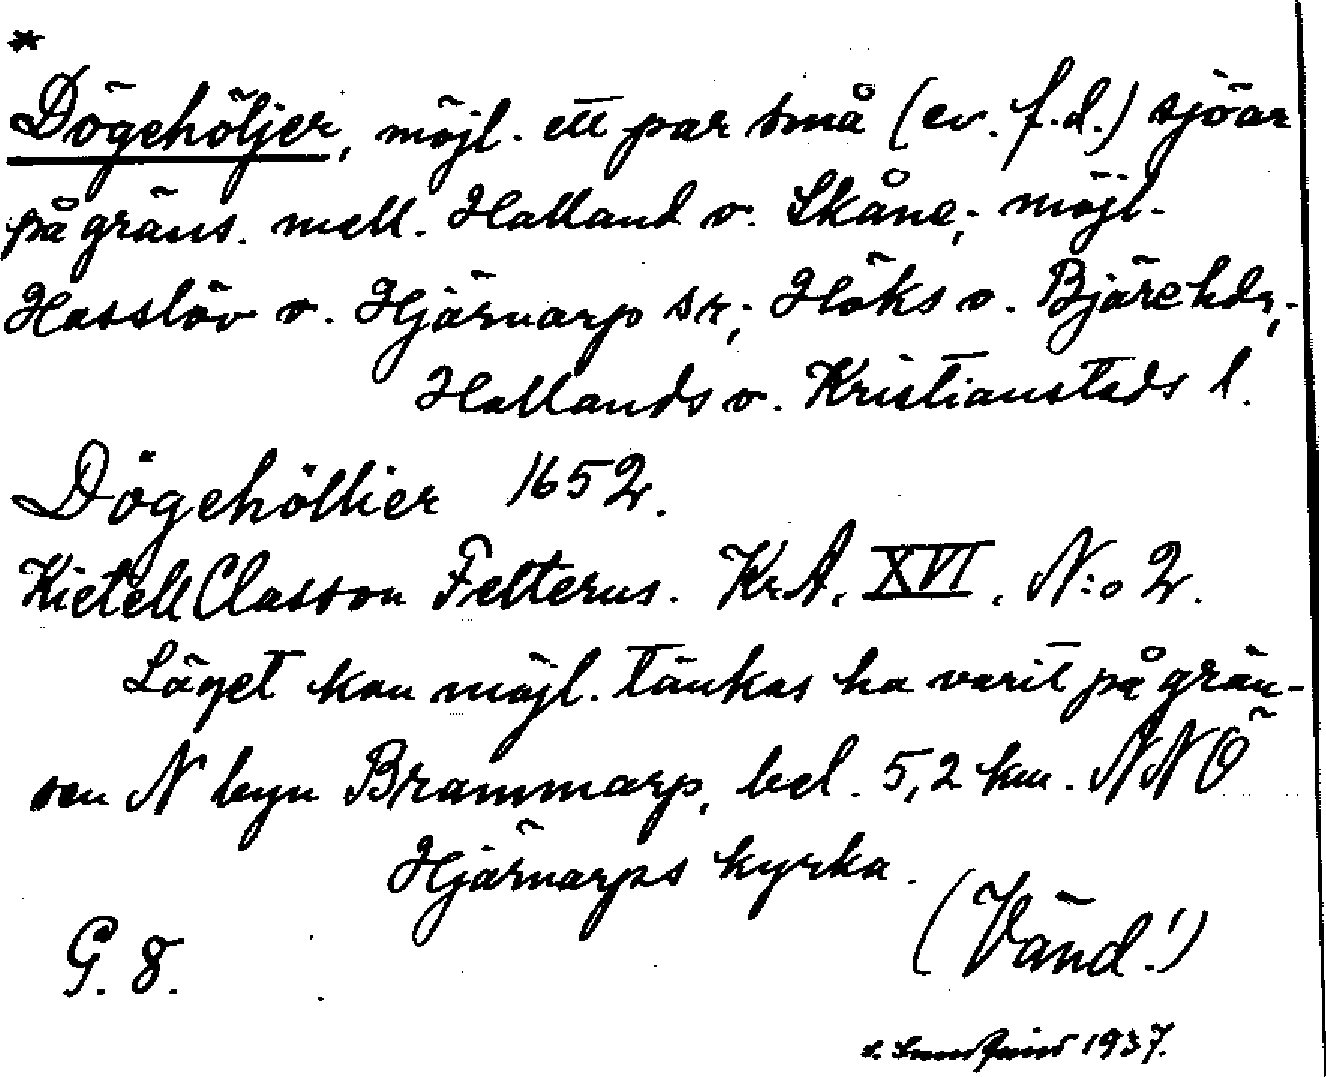 *
Dögehöljer, möjl. ett par små (ev. f.d.) sjöar
på gräns. mell. Halland o. Skåne; möjl.
Hasslöv o. Hjärnarp sr; Höks o. Bjäre hdr;
Hallands o. Kristianstads l.
Dögehöllier 1652.
Kietell Classon Felterus. KrA. XVI. N:o 2.
Läget kan möjl. tänkas ha varit på grän-
sen N byn Brammarp, bel. 5,2 km. NNÖ
Hjärnarps kyrka.
(Vänd!)
G. 8.
1937.